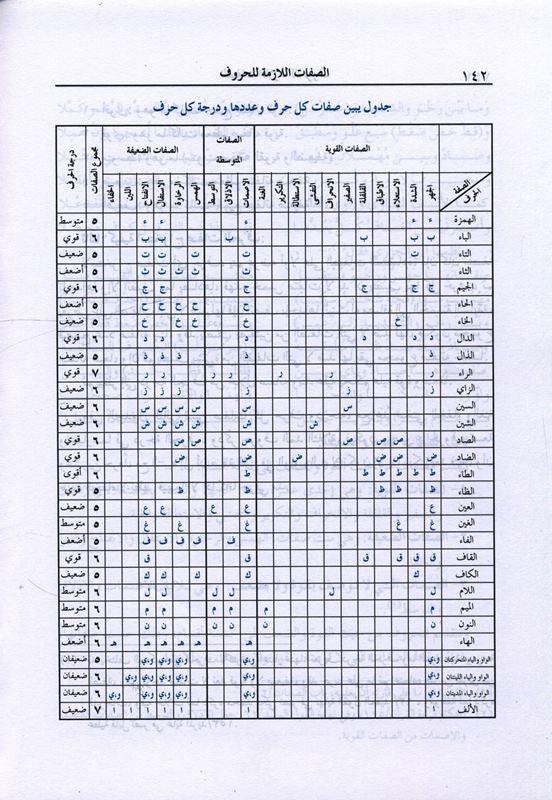 ١٤٢ الصفات اللازمة للحروف
جدول يبين صفات كل حرف وعددها ودرجة كل حرف
الصفات القوية الصفات المتوسطة الصفات الضعيفة
الصفة الحرف الجهر الشدة الاستعلاء الاطباق القلقلة الصفير الانحراف التفشي الاستطالة التكرير الغنة الاصمات الاذلاق التوسط الهمس الرخاوة الاستفال الانفتاح اللين الخفاء مجموع الصفات درجة الحرف
الهمزة ء ء ء ء ء ٥ متوسط
الباء ب ب ب ب ب ب ٦ قوي
التاء ت ت ت ت ت ٥ ضعيف
الثاء ث ث ث ث ث ٥ أضعف
الجيم ج ج ج ج ج ج ٦ قوي
الحاء ح ح ح ح ح ٥ أضعف
الخاء خ خ خ خ خ ٥ ضعيف
الدال د د د د د د ٦ قوي
الذال ذ ذ ذ ذ ذ ٥ ضعيف
الراء ر ر ر ر ر ر ر ٧ قوي
الزاي ز ز ز ز ز ز ٦ ضعيف
السين س س س س س س ٦ ضعيف
الشين ش ش ش ش ش ش ٦ ضعيف
الصاد ص ص ص ص ص ص ٦ قوي
الضاد ض ض ض ض ض ض ٦ قوي
الطاء ط ط ط ط ط ط ٦ أقوى
الظاء ظ ظ ظ ظ ظ ٥ قوي
العين ع ع ع ع ع ٥ ضعيف
الغين غ غ غ غ غ ٥ متوسط
الفاء ف ف ف ف ف ٥ أضعف
القاف ق ق ق ق ق ق ٦ قوي
الكاف ك ك ك ك ك ٥ ضعيف
اللام ل ل ل ل ل ل ٦ متوسط
الميم م م م م م م ٦ متوسط
النون ن ن ن ن ن ن ٦ متوسط
الهاء هـ هـ هـ هـ هـ هـ ٦ أضعف
الواو والياء المتحركتان و،ي و،ي و،ي و،ي و،ي ٥ ضعيفان
الواو والياء اللينتان و،ي و،ي و،ي و،ي و،ي و،ي ٦ ضعيفان
الواو والياء المديتان و،ي و،ي و،ي و،ي و،ي و،ي ٦ ضعيفان
الألف ا ا ا ا ا ا ٧ ضعيف